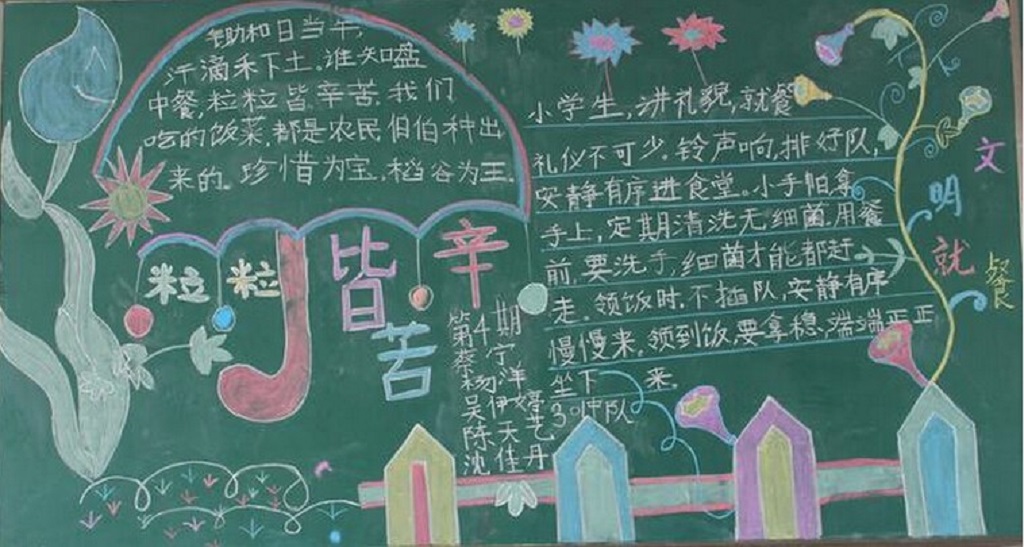 锄和日当午,
汗滴禾下土.谁知盘
中餐,粒粒皆辛苦.我们
吃的饭菜.都是农民伯伯种出
来的.珍惜为宝,稻谷为王.
粒粒皆辛苦
第4期
蔡宁
杨洋
吴伊婷
陈天艺
沈佳丹
小学生,讲礼貌,就餐
礼仪不可少.铃声响,排好队,
安静有序进食堂.小手帕拿
手上,定期清洗无细菌.用餐
前,要洗手,细菌才能都赶
走.领饭时.不插队,安静有序
慢慢来.领到饭.要拿稳.端端正正
坐下来.
30中队
文明就餐